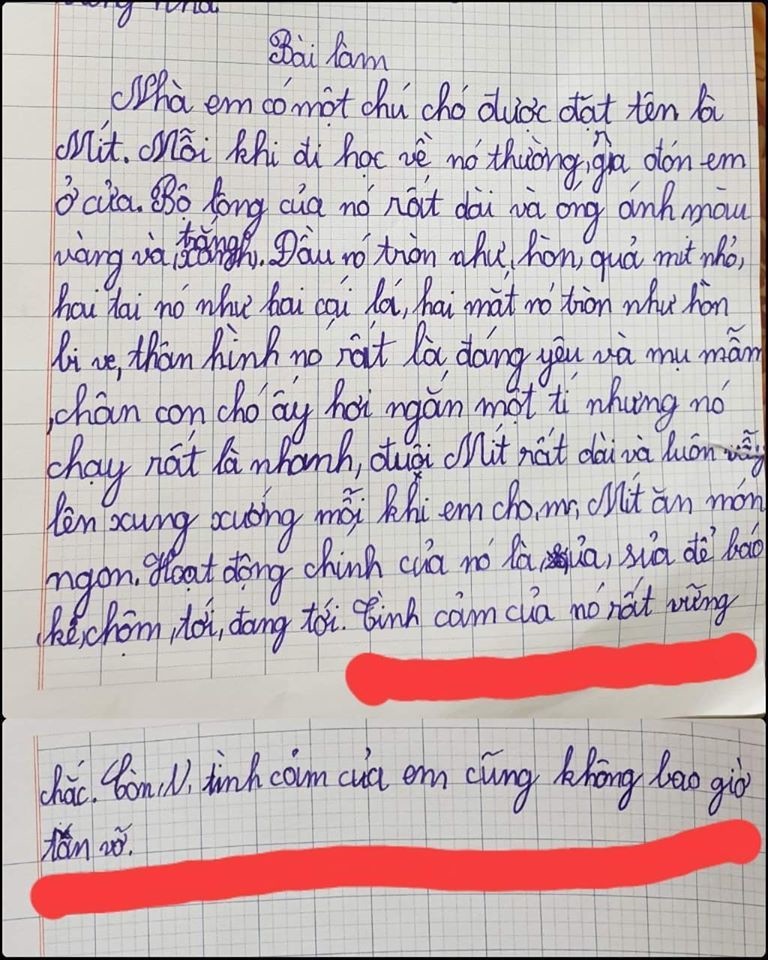 Bài làm
Nhà em có một chú chó được đặt tên là
Mít. Mỗi khi đi học về nó thường, ra đón em
ở cửa. Bộ lông của nó rất dài và óng ánh màu
vàng và, trắng,. Đầu nó tròn như, hòn, quả mít nhỏ,
hai tai nó như hai cái lá, hai mắt nó tròn như hòn
bi ve, thân hình nó rất là, đáng yêu và mụ mẫm
, chân con chó ấy hơi ngắn một tí nhưng nó
chạy rất là nhanh, đuôi Mít rất dài và luôn vẫy
lên xung xướng mỗi khi em cho, m, Mít ăn món
ngon. Hoạt động chính của nó là, sủa, sủa để báo
kẻ, chộm, tới, đang tới. Tình cảm của nó rất vững
chắc. Còn, N, tình cảm của em cũng không bao giờ
tan vỡ.